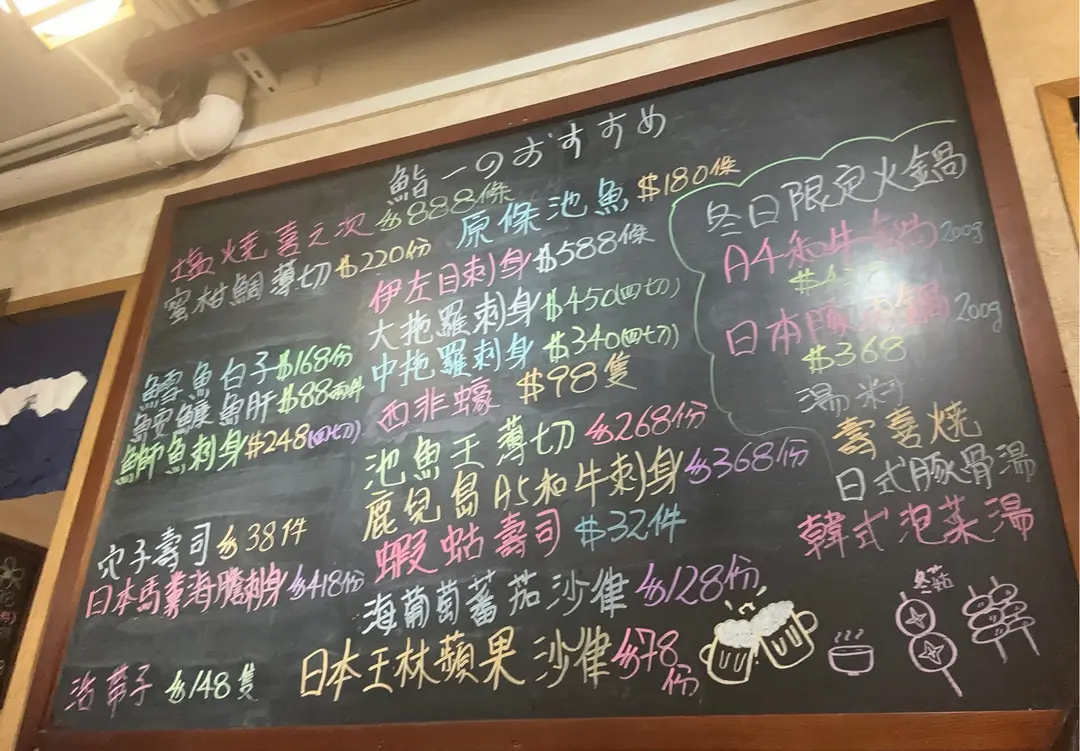 鮨一のおすすめ
塩燒喜之次 $888條
蜜柑鯛薄切 $220份
鱈魚白子 $168份
鮟鱇魚肝 $88兩件
鰤魚刺身 $248(四切)
穴子壽司 $38件
日本馬糞海膽刺身 $418份
活帶子 $148隻
原條池魚 $180條
伊左目刺身 $588條
大拖羅刺身 $450(四切)
中拖羅刺身 $340(四切)
西非蠔 $98隻
池魚王薄切 $268份
鹿兒島A5和牛刺身 $368份
蝦蛄壽司 $32件
海葡萄蕃茄沙律 $128份
日本王林蘋果沙律 $78份
冬日限定火鍋
A4和牛 200g
日本豚肉鍋 200g
$368
湯料
壽喜燒
日式豚骨湯
韓式泡菜湯
冬菇